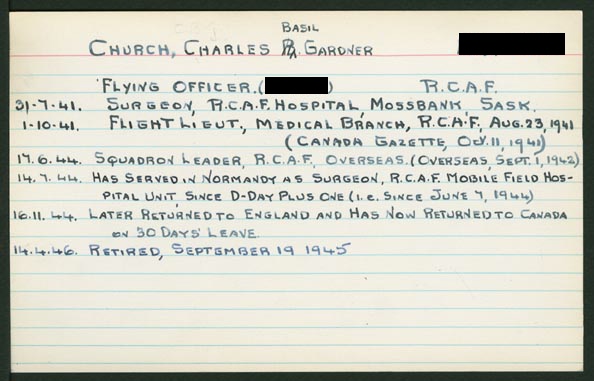 BASIL
CHURCH, CHARLES GARDNER
FLYING OFFICER. ( ) R.C.A.F.
31-7-41. SURGEON, R.C.A.F. HOSPITAL, MOSSBANK, SASK.
1-10-41. FLIGHT LIEUT., MEDICAL BRANCH, R.C.A.F., AUG. 23, 1941
(CANADA GAZETTE, OCT. 11, 1941)
17.6.44. SQUADRON LEADER, R.C.A.F. OVERSEAS. (OVERSEAS, SEPT. 1, 1942)
14.7.44. HAS SERVED IN NORMANDY AS SURGEON, R.C.A.F. MOBILE FIELD HOS-
PITAL UNIT, SINCE D-DAY PLUS ONE (I.E. SINCE JUNE 7, 1944)
16.11.44. LATER RETURNED TO ENGLAND AND HAS NOW RETURNED TO CANADA
ON 30 DAYS' LEAVE.
14.4.46. RETIRED, SEPTEMBER 19 1945